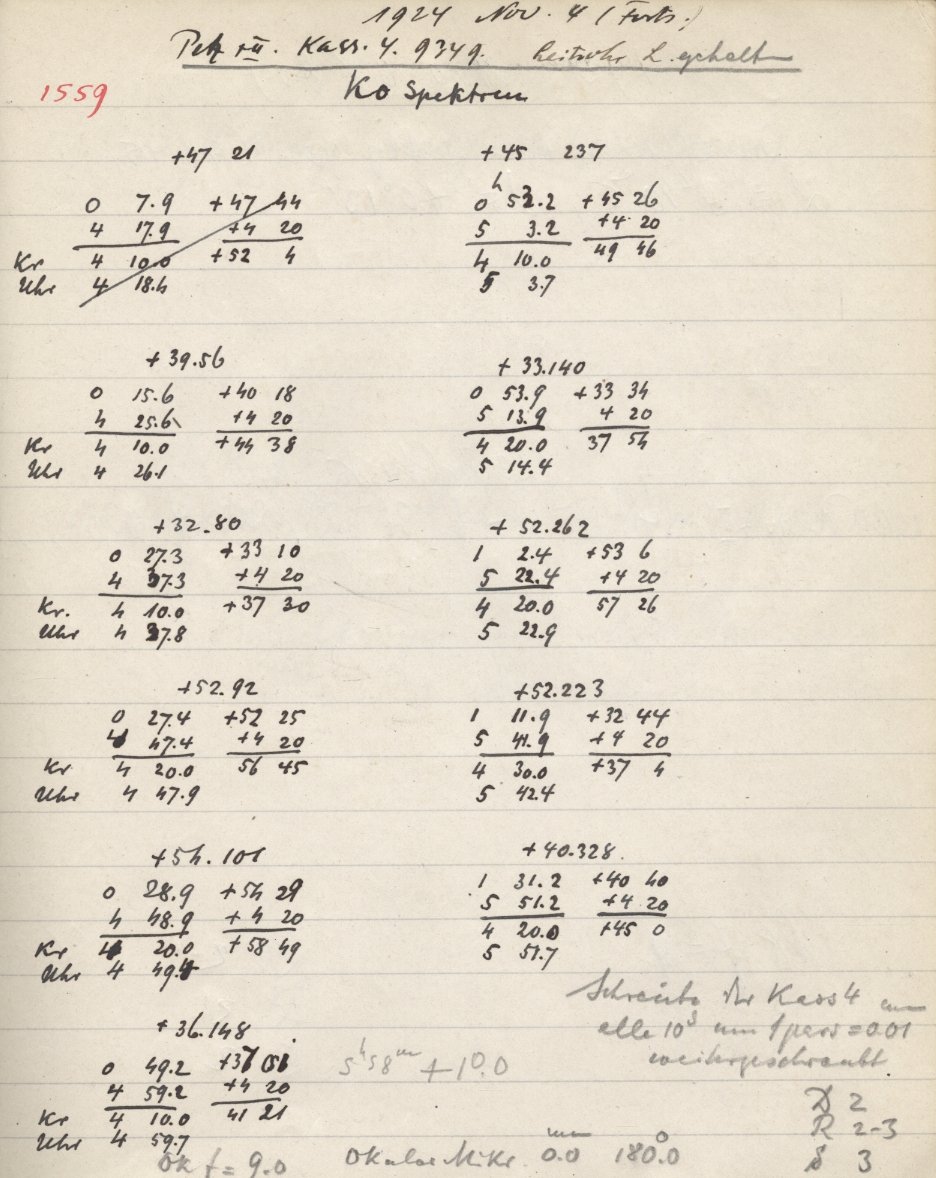 1924 Nov. 4 (Forts.)
Petz VII. Kass. 4. 9349. Leitrohr L. gehalten
1559
Ko Spektren
+47 21
0 7.9 +47 44
4 17.9 +4 20
Kr 4 10.0 +52 4
Uhr 4 18.4
+39.56
0 15.6 +40 18
4 25.6 +4 20
Kr 4 10.0 +44 38
Uhr 4 26.1
+32.80
0 27.3 +33 10
4 37.3 +4 20
Kr. 4 10.0 +37 30
Uhr 4 37.8
+52.92
0 27.4 +52 25
4 47.4 +4 20
Kr 4 20.0 56 45
Uhr 4 47.9
+54.101
0 28.9 +54 29
4 48.9 +4 20
Kr 4 20.0 +58 49
Uhr 4 49.4
+36.148
0 49.2 +37 01
4 59.2 +4 20
Kr 4 10.0 41 21
Uhr 4 59.7
+45 237
h
0 53.2 +45 26
5 3.2 +4 20
4 10.0 49 46
5 3.7
+33.140
0 53.9 +33 34
5 13.9 4 20
4 20.0 37 54
5 14.4
+52.262
1 2.4 +53 6
5 22.4 +4 20
4 20.0 57 26
5 22.9
+52.223
1 11.9 +32 44
5 41.9 +4 20
4 30.0 +37 4
5 42.4
+40.328.
1 31.2 +40 40
5 51.2 +4 20
4 20.0 +45 0
5 51.7
Schraube der Kass 4 um
alle 10s um 1 pars = 0.01 mm
weitergeschraubt
5h 58m +10.0
D 2
R 2-3
S 3
Ok f = 9.0 Okular Mikr. 0.0 mm 180.0°